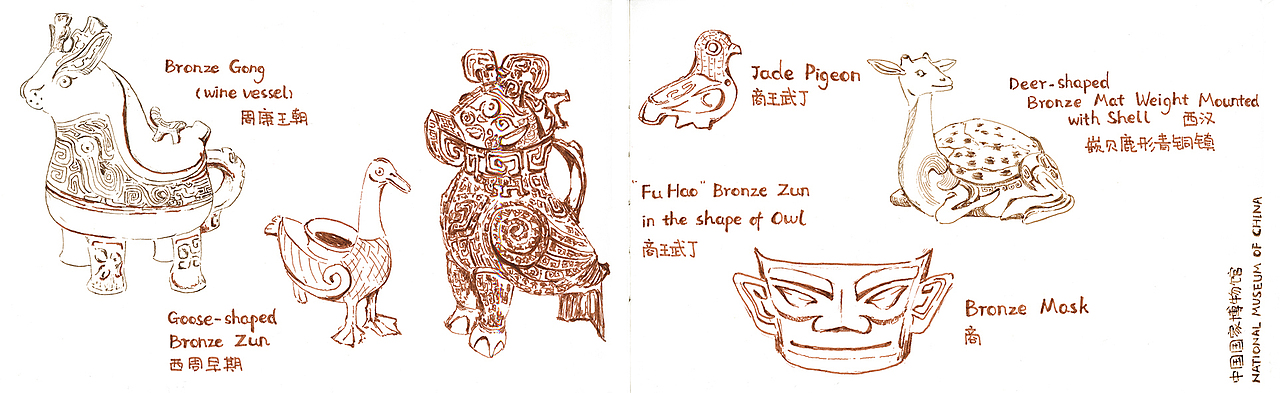 Bronze Gong
(wine vessel)
周康王朝
Goose-shaped
Bronze Zun
西周早期
Jade Pigeon
商王武丁
"Fu Hao" Bronze Zun
in the shape of Owl
商王武丁
Deer-shaped
Bronze Mat Weight Mounted
with Shell 西汉
嵌贝鹿形青铜镇
Bronze Mask
商
中国国家博物馆
NATIONAL MUSEUM OF CHINA